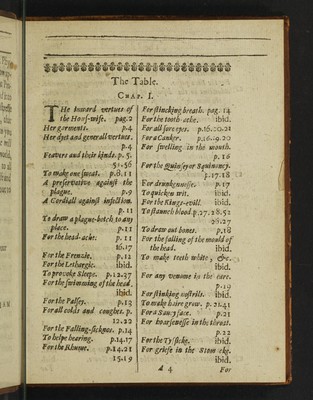 The Table.
CHAP. I.
THe inward vertues of
the Hous-wife. pag.2
Her garments. p.4
Her dyet and generall vertues.
p.4
Feavers and their kinds. p. 5.
To make one sweat. p.8.11
A preservative against the
plague. p.9
A Cordiall against infection.
p. 11
To draw a plague-botch to any
place. p.11
For the head-ache. p. 11
16.17
For the Frenzie. p.12
For the Lethargie. ibid.
To provoke Sleepe. p.12.37
For the swimming of the head.
ibid.
For the Palsey. p.13
For all colds and coughes. p.
12.22
For the Falling-sicknes. p.14
To helpe hearing. p.14.17
For the Rhume. p.14.21
15.19
For stincking breath. pag. 14
For the tooth-ache. ibid.
For all sore eyes. p.16.20.21
For a Canker. p.16.19.20
For swelling in the mouth.
p. 16
For the Quinsey or Squinancy.
p.17.18
For drunkennesse. p.17
To quicken wit. ibid.
For the Kings-evill. ibid.
To staunch blood. p.27.18.52
To draw out bones. p.18
For the falling of the mould of
the head. ibid.
To make teeth white, &c.
ibid.
For any venome in the eare.
p.19
For stinking nostrils. ibid.
To make haire grow. p. 21.43
For a Saucy face. p.21
For hoarsenesse in the throat.
p.22
For the Tyssicke. ibid.
For griefe in the Stomacke.
ibid.
A 4 For